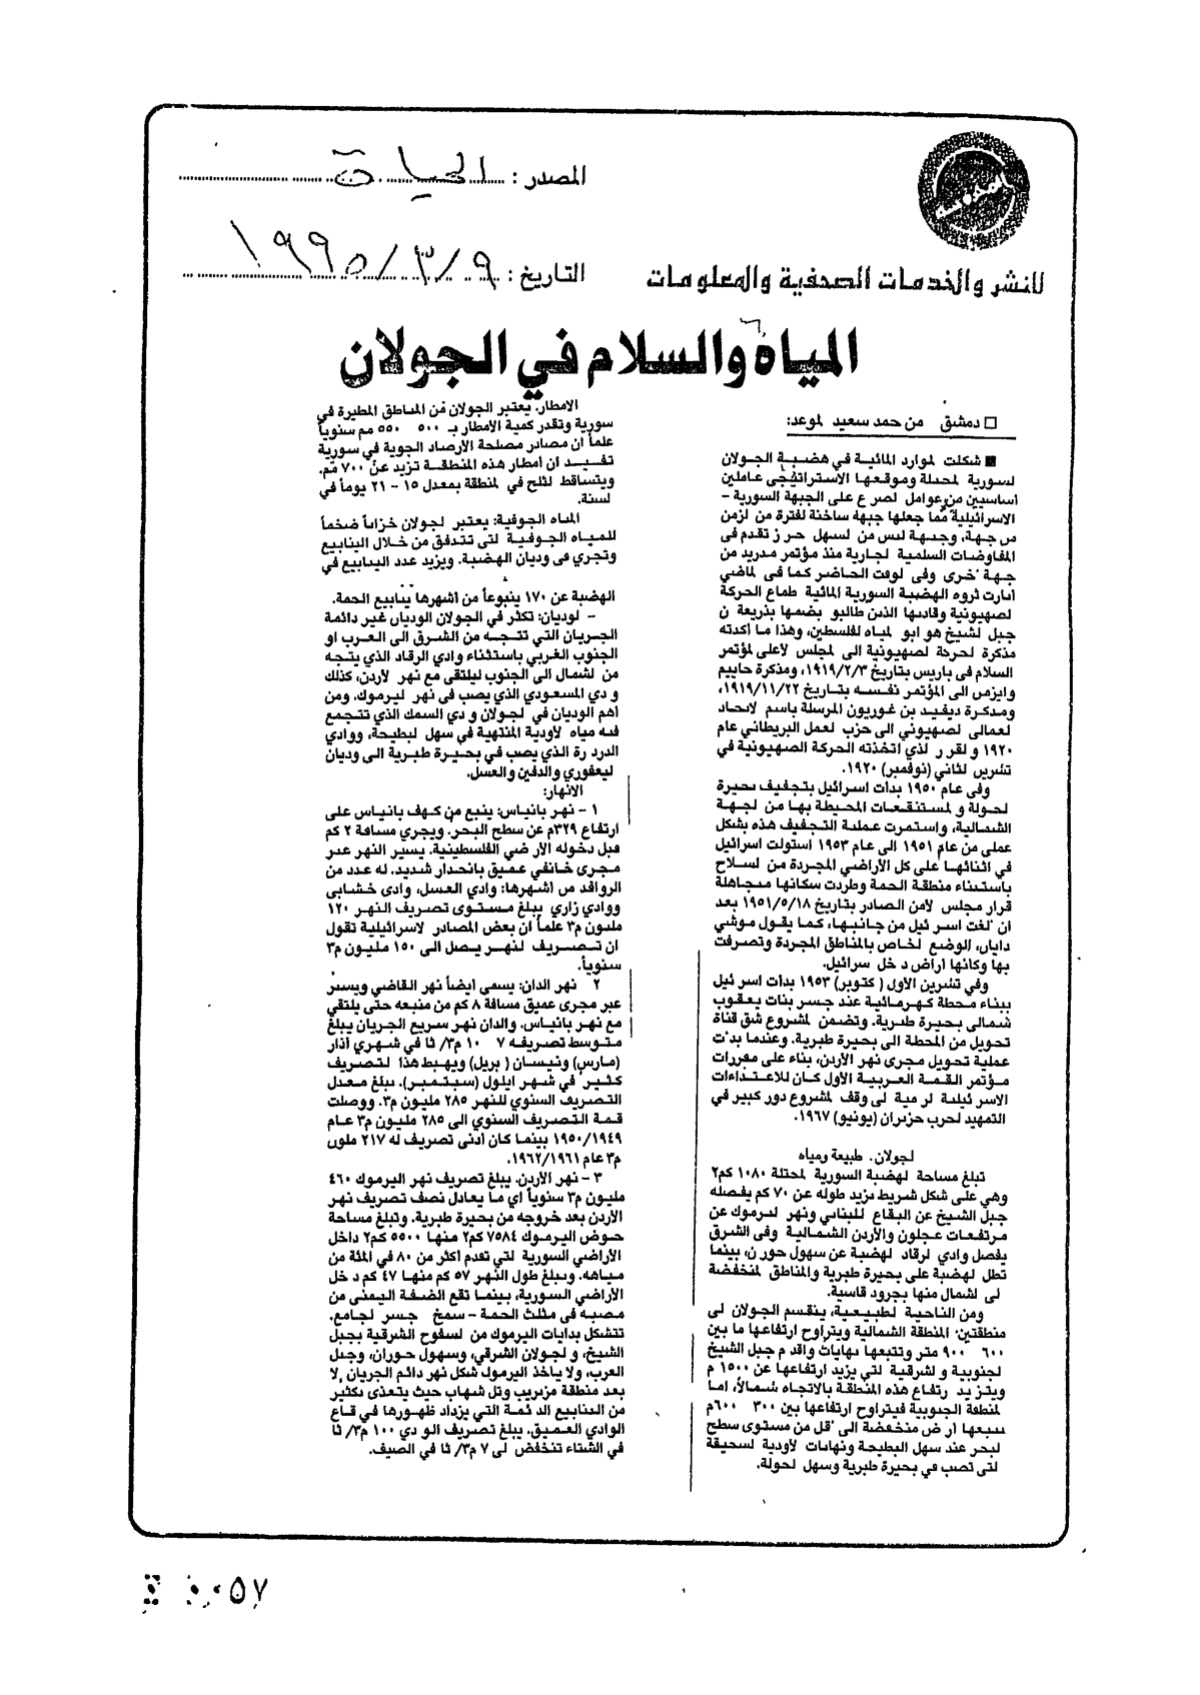 المصدر : الحياة
التاريخ : ٩/٣/١٩٩٥
للنشر والخدمات الصحفية والمعلومات
المياه والسلام في الجولان
□ دمشق من حمد سعيد لموعد:
■ شكلت لموارد المائية في هضبة الجولان
لسورية لمحتلة وموقعها الاستراتيجي عاملين
اساسيين من عوامل لصرع على الجبهة السورية –
الاسرائيلية مما جعلها جبهة ساخنة لفترة من لزمن
من جهة، وجبهة ليس من لسهل حرز تقدم في
المفاوضات السلمية لجارية منذ مؤتمر مدريد من
جهة خرى وفي لوقت الحاضر كما في لماضي
اثارت ثروه الهضبة السورية المائية طماع الحركة
لصهيونية وقادتها الذين طالبو بضمها بذريعة ن
جبل لشيخ هو ابو لمياه لفلسطين، وهذا ما أكدته
مذكرة لحركة لصهيونية الى لمجلس لاعلى لمؤتمر
السلام في باريس بتاريخ ١٩١٩/٢/٣، ومذكرة حاييم
وايزمن الى المؤتمر نفسه بتاريخ ١٩١٩/١١/٢٢،
ومذكرة ديفيد بن غوريون المرسلة باسم لاتحاد
لعمالي لصهيوني الى حزب لعمل البريطاني عام
١٩٢٠ و لقرر لذي اتخذته الحركة الصهيونية في
تشرين لثاني (نوفمبر) ١٩٢٠.
وفي عام ١٩٥٠ بدأت اسرائيل بتجفيف بحيرة
لحولة و لمستنقعات المحيطة بها من لجهة
الشمالية، واستمرت عملية التجفيف هذه بشكل
عملي من عام ١٩٥١ الى عام ١٩٥٣ استولت اسرائيل
في اثنائها على كل الأراضي المجردة من لسلاح
باستثناء منطقة الحمة وطردت سكانها متجاهلة
قرار مجلس لامن الصادر بتاريخ ١٩٥١/٥/١٨ بعد
ان لغت اسرئيل من جانبها، كما يقول موشي
دايان، الوضع لخاص بالمناطق المجردة وتصرفت
بها وكانها اراض دخل سرائيل.
وفي تشرين الاول (كتوبر) ١٩٥٣ بدأت اسرئيل
ببناء محطة كهرمائية عند جسر بنات يعقوب
شمالي بحيرة طبرية. وتضمن لمشروع شق قناة
تحويل من المحطة الى بحيرة طبرية. وعندما بدت
عملية تحويل مجرى نهر الأردن، بناء على مقررات
مؤتمر القمة العربية الأول كان للاعتداءات
الاسرئيلية لرمية لى وقف لمشروع دور كبير في
التمهيد لحرب حزيران (يونيو) ١٩٦٧.
لجولان. طبيعة ومياه
تبلغ مساحة لهضبة السورية لمحتلة ١٠٨٠ كم٢
وهي على شكل شريط يزيد طوله عن ٧٠ كم يفصله
جبل الشيخ عن البقاع للبناني ونهر ليرموك عن
مرتفعات عجلون والأردن الشمالية وفي الشرق
يفصل وادي لرقاد لهضبة عن سهول حورن، بينما
تطل لهضبة على بحيرة طبرية والمناطق لمنخفضة
لى لشمال منها بجرود قاسية.
ومن الناحية لطبيعية، ينقسم الجولان لى
منطقتين: المنطقة الشمالية ويتراوح ارتفاعها ما بين
٦٠٠ ٩٠٠ متر وتتبعها نهايات واقدم جبل الشيخ
لجنوبية و لشرقية لتي يزيد ارتفاعها عن ١٥٠٠ م
ويتزيد رتفاع هذه المنطقة بالاتجاه شمالاً، اما
لمنطقة الجنوبية فيتراوح ارتفاعها بين ٣٠٠ ٦٠٠م
تتبعها ارض منخفضة الى قل من مستوى سطح
لبحر عند سهل البطيحة ونهايات لاودية لسحيقة
لتي تصب في بحيرة طبرية وسهل لحولة.
الامطار. يعتبر الجولان من المناطق المطيرة في
سورية وتقدر كمية الامطار بـ ٥٠٠ ٥٥٠ مم سنوياً
علماً ان مصادر مصلحة الأرصاد الجوية في سورية
تفيد ان أمطار هذه المنطقة تزيد عن ٧٠٠ مم.
ويتساقط لثلج في لمنطقة بمعدل ١٥ – ٢١ يوماً في
لسنة.
المياه الجوفية: يعتبر لجولان خزاناً ضخماً
للمياه الجوفية لتي تتدفق من خلال الينابيع
وتجري في وديان الهضبة. ويزيد عدد الينابيع في
الهضبة عن ١٧٠ ينبوعاً من اشهرها ينابيع الحمة.
– لوديان: تكثر في الجولان الوديان غير دائمة
الجريان التي تتجه من الشرق الى الغرب او
الجنوب الغربي باستثناء وادي الرقاد الذي يتجه
من لشمال الى الجنوب ليلتقي مع نهر لأردن، كذلك
و دي المسعودي الذي يصب في نهر ليرموك. ومن
أهم الوديان في لجولان و دي السمك الذي تتجمع
فيه مياه لاودية المنتهية في سهل لبطيحة، ووادي
الدردرة الذي يصب في بحيرة طبرية الى وديان
ليعفوري والدفين والعسل.
الانهار:
١ – نهر بانياس: ينبع من كهف بانياس على
ارتفاع ٣٢٩م عن سطح البحر. ويجري مسافة ٢ كم
قبل دخوله الارضي الفلسطينية. يسير النهر عبر
مجرى خانقي عميق بانحدار شديد. له عدد من
الروافد من اشهرها: وادي العسل، وادي خشابي
ووادي زاري يبلغ مستوى تصريف النهر ١٢٠
مليون م٣ علماً ان بعض المصادر لاسرائيلية تقول
ان تصريف لنهر يصل الى ١٥٠ مليون م٣
سنوياً.
٢ نهر الدان: يسمى أيضاً نهر القاضي ويسير
عبر مجرى عميق مسافة ٨ كم من منبعه حتى يلتقي
مع نهر بانياس. والدان نهر سريع الجريان يبلغ
متوسط تصريفه ٧ ١٠ م٣/ ثا في شهري آذار
(مارس) ونيسان (بريل) ويهبط هذا لتصريف
كثير في شهر ايلول (سبتمبر). يبلغ معدل
التصريف السنوي للنهر ٢٨٥ مليون م٣. ووصلت
قمة التصريف السنوي الى ٢٨٥ مليون م٣ عام
١٩٥٠/١٩٤٩ بينما كان أدنى تصريف له ٢١٧ ملون
م٣ عام ١٩٦٢/١٩٦١.
٣ – نهر الأردن. يبلغ تصريف نهر اليرموك ٤٦٠
مليون م٣ سنوياً اي ما يعادل نصف تصريف نهر
الأردن بعد خروجه من بحيرة طبرية. وتبلغ مساحة
حوض اليرموك ٧٥٨٤ كم٢ منها ٥٥٠٠ كم٢ داخل
الأراضي السورية لتي تقدم اكثر من ٨٠ في المئة من
مياهه. ويبلغ طول النهر ٥٧ كم منها ٤٧ كم دخل
الأراضي السورية، بينما تقع الضفة اليمنى من
مصبه في مثلث الحمة – سمخ جسر لجامع.
تتشكل بدايات اليرموك من لسفوح الشرقية بجبل
الشيخ، و لجولان الشرقي، وسهول حوران، وجبل
العرب، ولا يأخذ اليرموك شكل نهر دائم الجريان لا
بعد منطقة مزيريب وتل شهاب حيث يتغذى بكثير
من الينابيع الدئمة التي يزداد ظهورها في قاع
الوادي العميق. يبلغ تصريف الودي ١٠٠ م٣/ ثا
في الشتاء تنخفض لى ٧ م٣/ ثا في الصيف.
٥٧